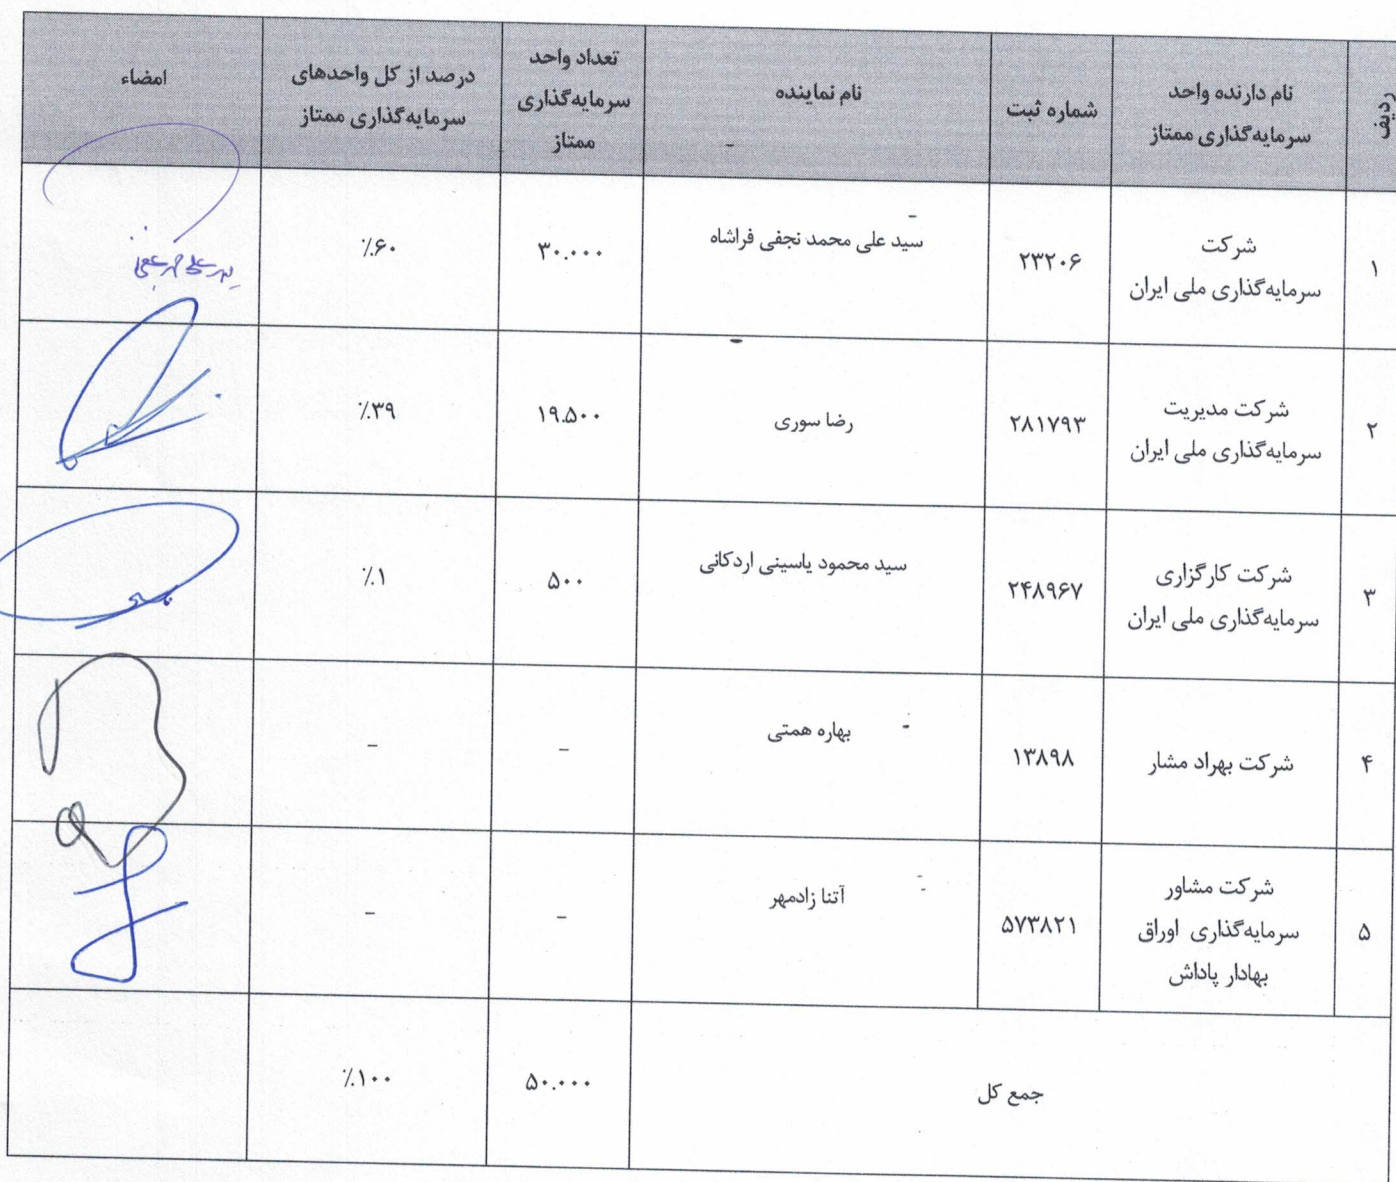 ردیف
نام دارنده واحد
سرمایه‌گذاری ممتاز
شماره ثبت
نام نماینده
تعداد واحد
سرمایه‌گذاری
ممتاز
درصد از کل واحدهای
سرمایه‌گذاری ممتاز
امضاء
۱
شرکت
سرمایه‌گذاری ملی ایران
۲۳۲۰۶
سید علی محمد نجفی فراشاه
۳۰.۰۰۰
٪۶۰
۲
شرکت مدیریت
سرمایه‌گذاری ملی ایران
۲۸۱۷۹۳
رضا سوری
۱۹.۵۰۰
٪۳۹
۳
شرکت کارگزاری
سرمایه‌گذاری ملی ایران
۲۴۸۹۶۷
سید محمود یاسینی اردکانی
۵۰۰
٪۱
۴
شرکت بهراد مشار
۱۳۸۹۸
بهاره همتی
-
-
۵
شرکت مشاور
سرمایه‌گذاری اوراق
بهادار پاداش
۵۷۳۸۲۱
آتنا زادمهر
-
-
جمع کل
۵۰.۰۰۰
٪۱۰۰